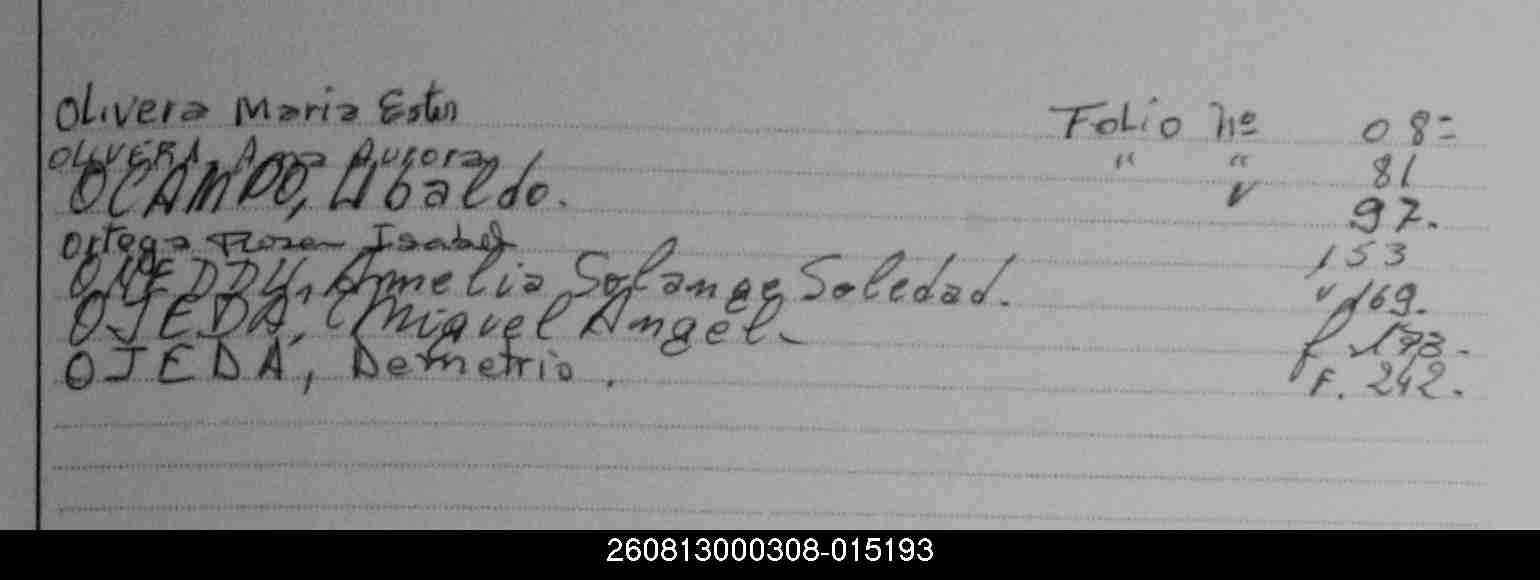 Olivera Maria Ester Folio nº 08=
OLIVERA, Ana Aurora " " 81
OCAMPO, Ubaldo. v 97.
Ortega Rosa Isabel 153
ONEDDU, Amelia Solange Soledad. v 169.
OJEDA, Miguel Angel. f 173.
OJEDA, Demetrio. F. 242.
260813000308-015193